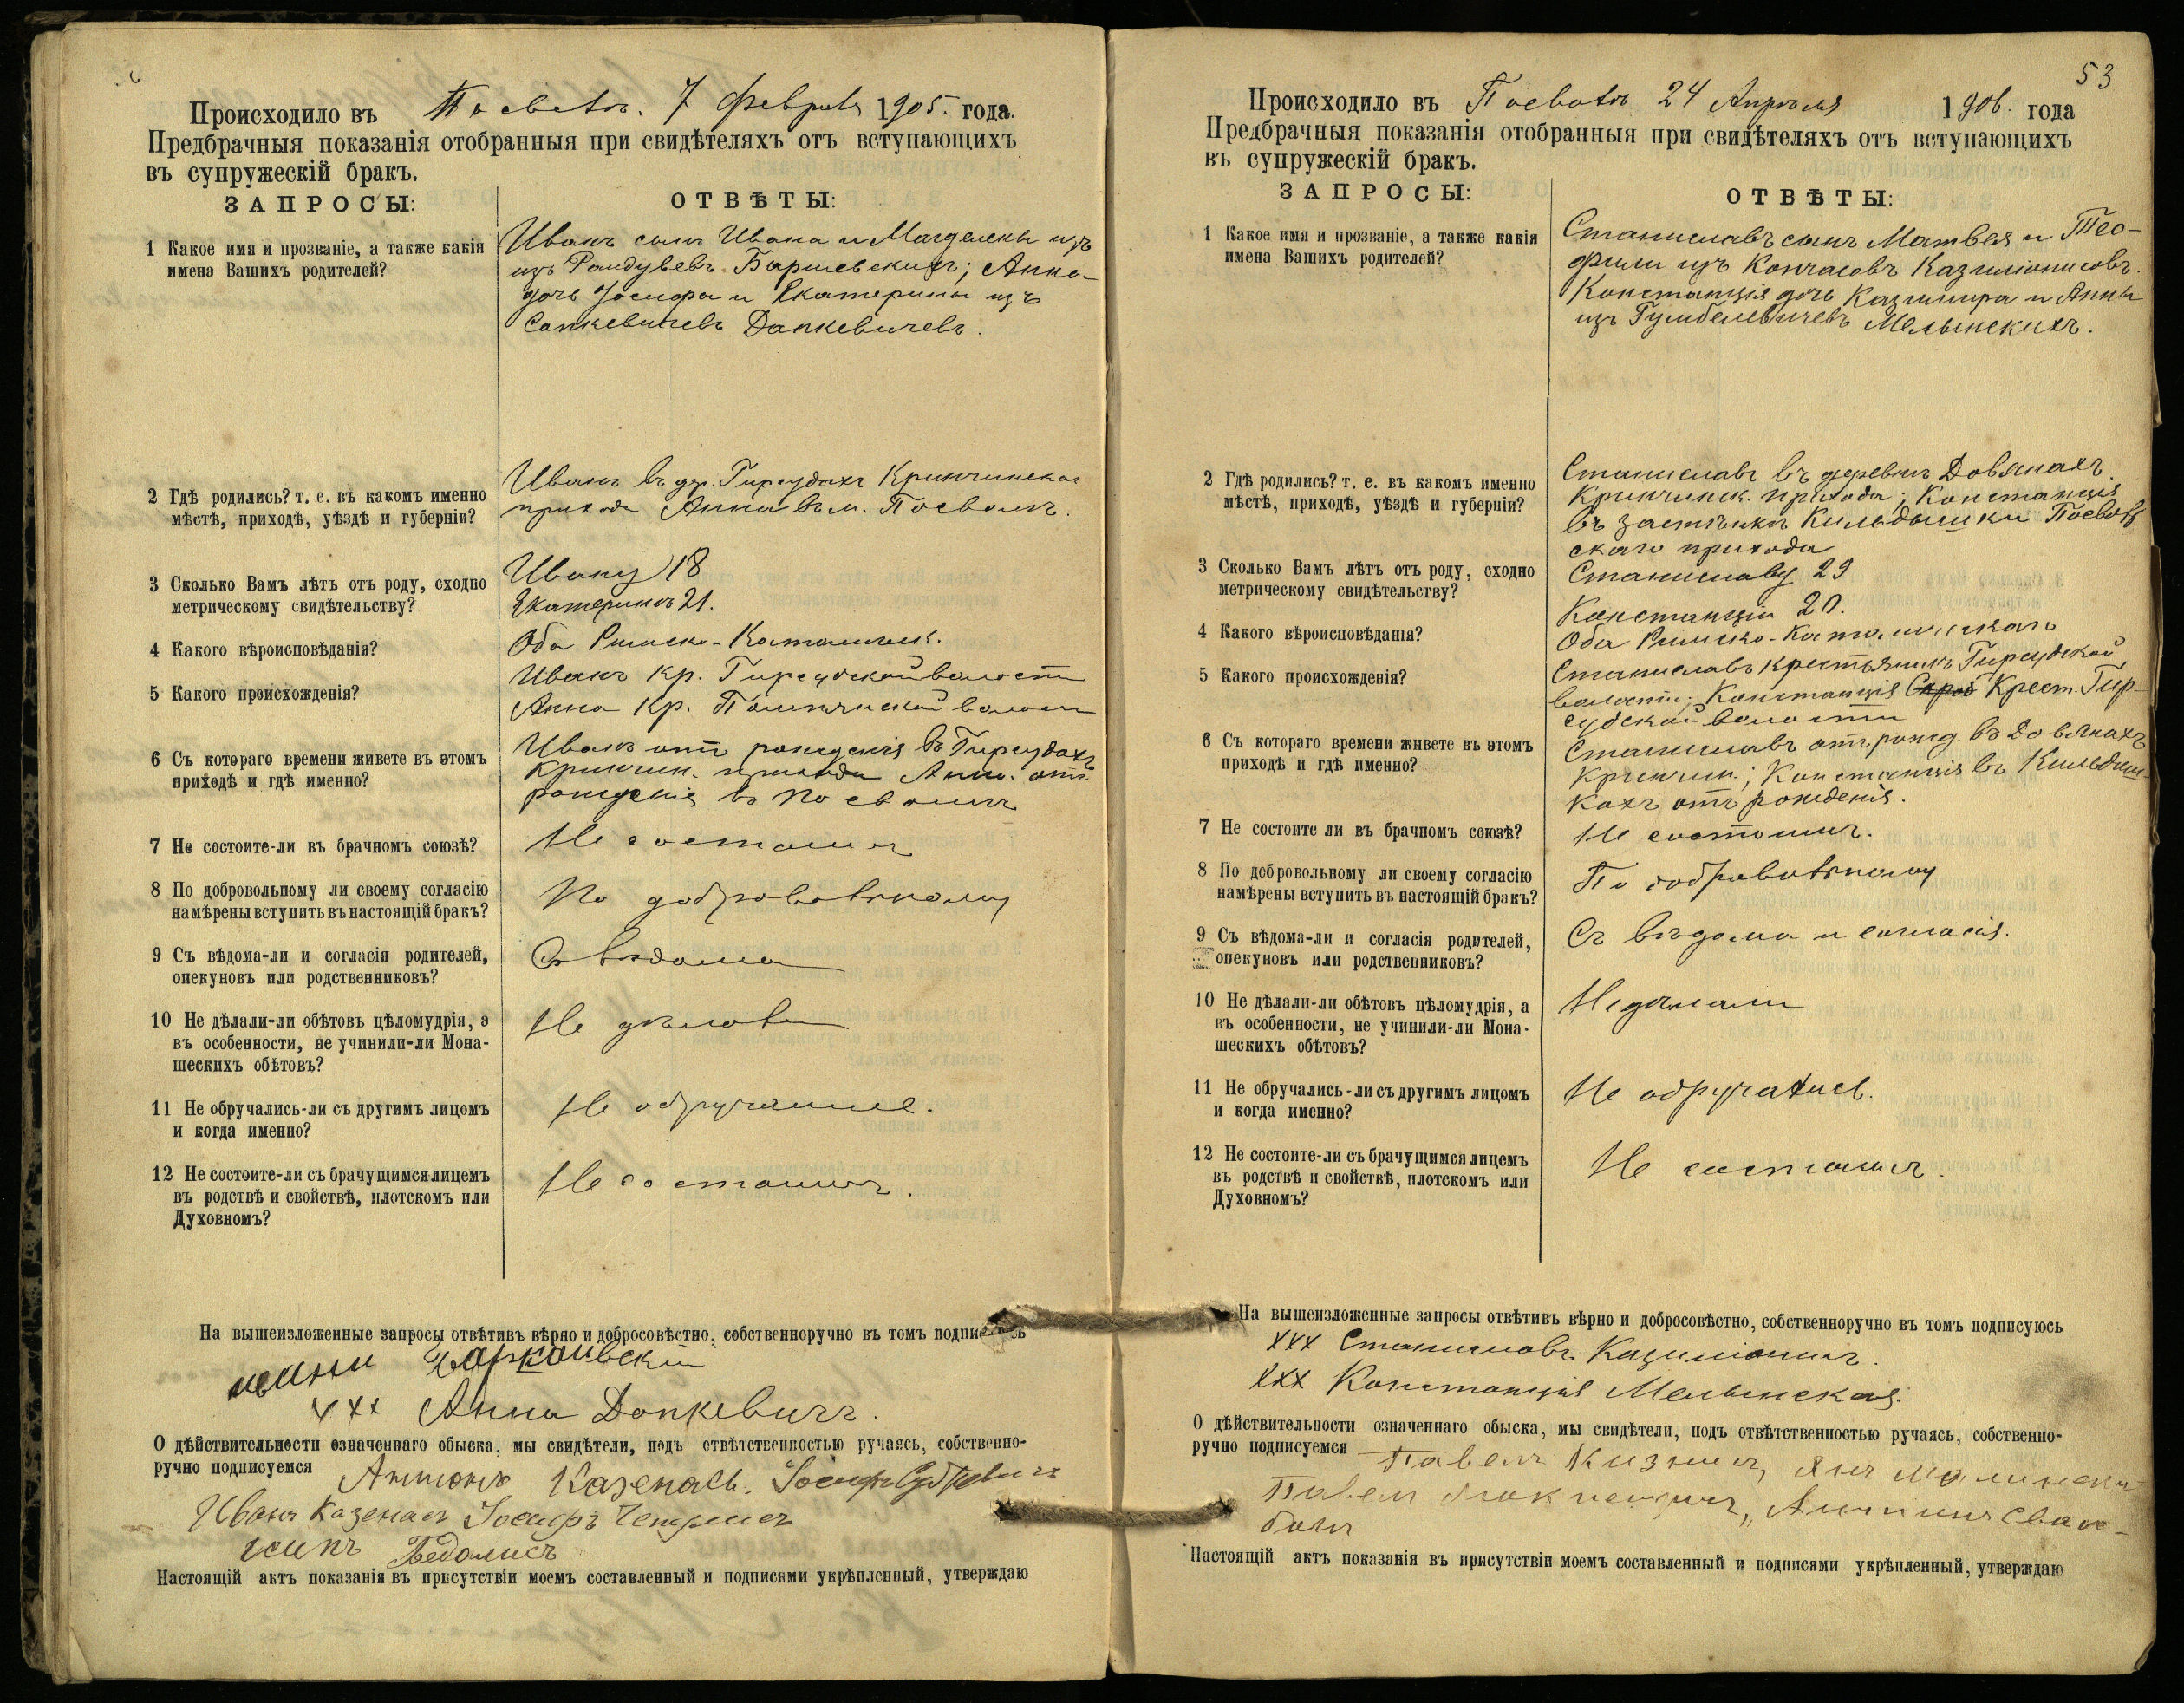 Происходило въ Посволь. 7 Февраля 1905. года.
Предбрачныя показанія отобранныя при свидѣтеляхъ отъ вступающихъ
въ супружескій бракъ.
ЗАПРОСЫ:
ОТВѢТЫ:
1 Какое имя и прозваніе, а также какія
имена Вашихъ родителей?
Иванъ сынъ Ивана и Магделены изъ
изъ Рандувевъ Баршевскихъ; Анна
дочь Іосифа и Екатерины изъ
Сапкевичевъ Данкевичевъ.
2 Гдѣ родились? т. е. въ какомъ именно
мѣстѣ, приходѣ, уѣздѣ и губерніи?
Иванъ въ дер. Гирсудахъ Кринчинскаг
прихода Анна въ м. Посволь.
3 Сколько Вамъ лѣтъ отъ роду, сходно
метрическому свидѣтельству?
Ивану 18
Екатеринѣ 21.
4 Какого вѣроисповѣданія?
Оба Римско-Католическ.
5 Какого происхожденія?
Иванъ кр. Гирсудской волости
Анна кр. Помпянской волости
6 Съ котораго времени живете въ этомъ
приходѣ и гдѣ именно?
Иванъ отъ рожденія въ Гирсудахъ
Кринчин. прихода Анна. отъ
рожденія въ Посволь
7 Не состоите-ли въ брачномъ союзѣ?
Не состоимъ
8 По добровольному ли своему согласію
намѣрены вступить въ настоящій бракъ?
По добровольному
9 Съ вѣдома-ли и согласія родителей,
опекуновъ или родственниковъ?
Съ вѣдома
10 Не дѣлали-ли обѣтовъ цѣломудрія, а
въ особенности, не учинили-ли Мона-
шескихъ обѣтовъ?
Не дѣлали
11 Не обручались-ли съ другимъ лицомъ
и когда именно?
Не обручались.
12 Не состоите-ли съ брачущимся лицемъ
въ родствѣ и свойствѣ, плотскомъ или
Духовномъ?
Не состоимъ.
На вышеизложенные запросы отвѣтивъ вѣрно и добросовѣстно, собственноручно въ томъ подписуюсь
ххх Анна Данкевичъ.
О дѣйствительности означеннаго обыска, мы свидѣтели, подъ отвѣтственностью ручаясь, собственно-
ручно подписуемся Антонъ Казенасъ. Іосифъ
Иванъ Казенасъ Іосифъ
Настоящій актъ показанія въ присутствіи моемъ составленный и подписями укрѣпленный, утверждаю
53
Происходило въ Посволь 24 Апрѣля 1906. года
Предбрачныя показанія отобранныя при свидѣтеляхъ отъ вступающихъ
въ супружескій бракъ.
ЗАПРОСЫ:
ОТВѢТЫ:
1 Какое имя и прозваніе, а также какія
имена Вашихъ родителей?
Станиславъ сынъ Матвея и Тео-
фили изъ Кончасовъ Казиліонисовъ.
Констанція дочь Казимира и Анны
изъ Гумбелевичевъ Мелынскихъ.
2 Гдѣ родились? т. е. въ какомъ именно
мѣстѣ, приходѣ, уѣздѣ и губерніи?
Станиславъ въ деревнѣ Довянахъ
Кринчинск. прихода; Констанція
въ застѣнкѣ Кильдышки Посволь
скаго прихода
3 Сколько Вамъ лѣтъ отъ роду, сходно
метрическому свидѣтельству?
Станиславу 29
Констанціи 20.
4 Какого вѣроисповѣданія?
Оба Римско-Католическаго
5 Какого происхожденія?
Станиславъ крестьянинъ Гирсудской
волости; Констанція Крест. Гир-
судской волости
6 Съ котораго времени живете въ этомъ
приходѣ и гдѣ именно?
Станиславъ отъ рожд. въ Довянахъ
Кринчин.; Констанція въ Кильдыш-
кахъ отъ рожденія.
7 Не состоите ли въ брачномъ союзѣ?
Не состоимъ.
8 По добровольному ли своему согласію
намѣрены вступить въ настоящій бракъ?
По добровольному
9 Съ вѣдома-ли и согласія родителей,
опекуновъ или родственниковъ?
Съ вѣдома и согласія.
10 Не дѣлали-ли обѣтовъ цѣломудрія, а
въ особенности, не учинили-ли Мона-
шескихъ обѣтовъ?
Не дѣлали
11 Не обручались-ли съ другимъ лицомъ
и когда именно?
Не обручались.
12 Не состоите-ли съ брачущимся лицемъ
въ родствѣ и свойствѣ, плотскомъ или
Духовномъ?
Не состоимъ.
На вышеизложенные запросы отвѣтивъ вѣрно и добросовѣстно, собственноручно въ томъ подписуюсь
ххх Станиславъ Казиліонисъ.
ххх Констанція Мелынская.
О дѣйствительности означеннаго обыска, мы свидѣтели, подъ отвѣтственностью ручаясь, собственно-
ручно подписуемся Павелъ
Павелъ
Настоящій актъ показанія въ присутствіи моемъ составленный и подписями укрѣпленный, утверждаю